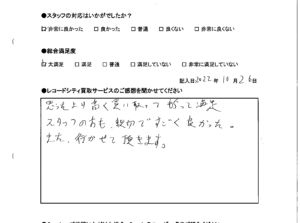 ●スタッフの対応はいかがでしたか？
☑非常に良かった □良かった □普通 □良くない □非常に良くない
●総合満足度
☑大満足 □満足 □普通 □満足していない □非常に満足していない
記入日 2022年 10月 26日
●レコードシティ買取サービスのご感想を聞かせてください
思ったより高く買い取って もらって満足
スタッフの方も、親切ですごく良かった。
また、行かせて頂きます。